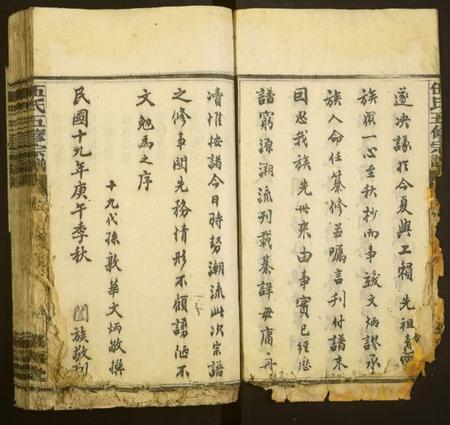 伍氏五修宗譜
遂決議於今夏興工賴先祖有靈
族眾一心至秋抄而事竣文炳謬承
族人命任纂修並囑言刊付譜末
回思我族先世來由事實已經歷
譜窮源溯流刊載綦詳毋庸再
瀆惟按諸今日時勢潮流此次宗譜
之修事関先務情形不顧譾陋不
文勉為之序
十九代孫敦華文炳敬撰
民國十九年庚午季秋
闔族敬刊
伍氏五修宗譜